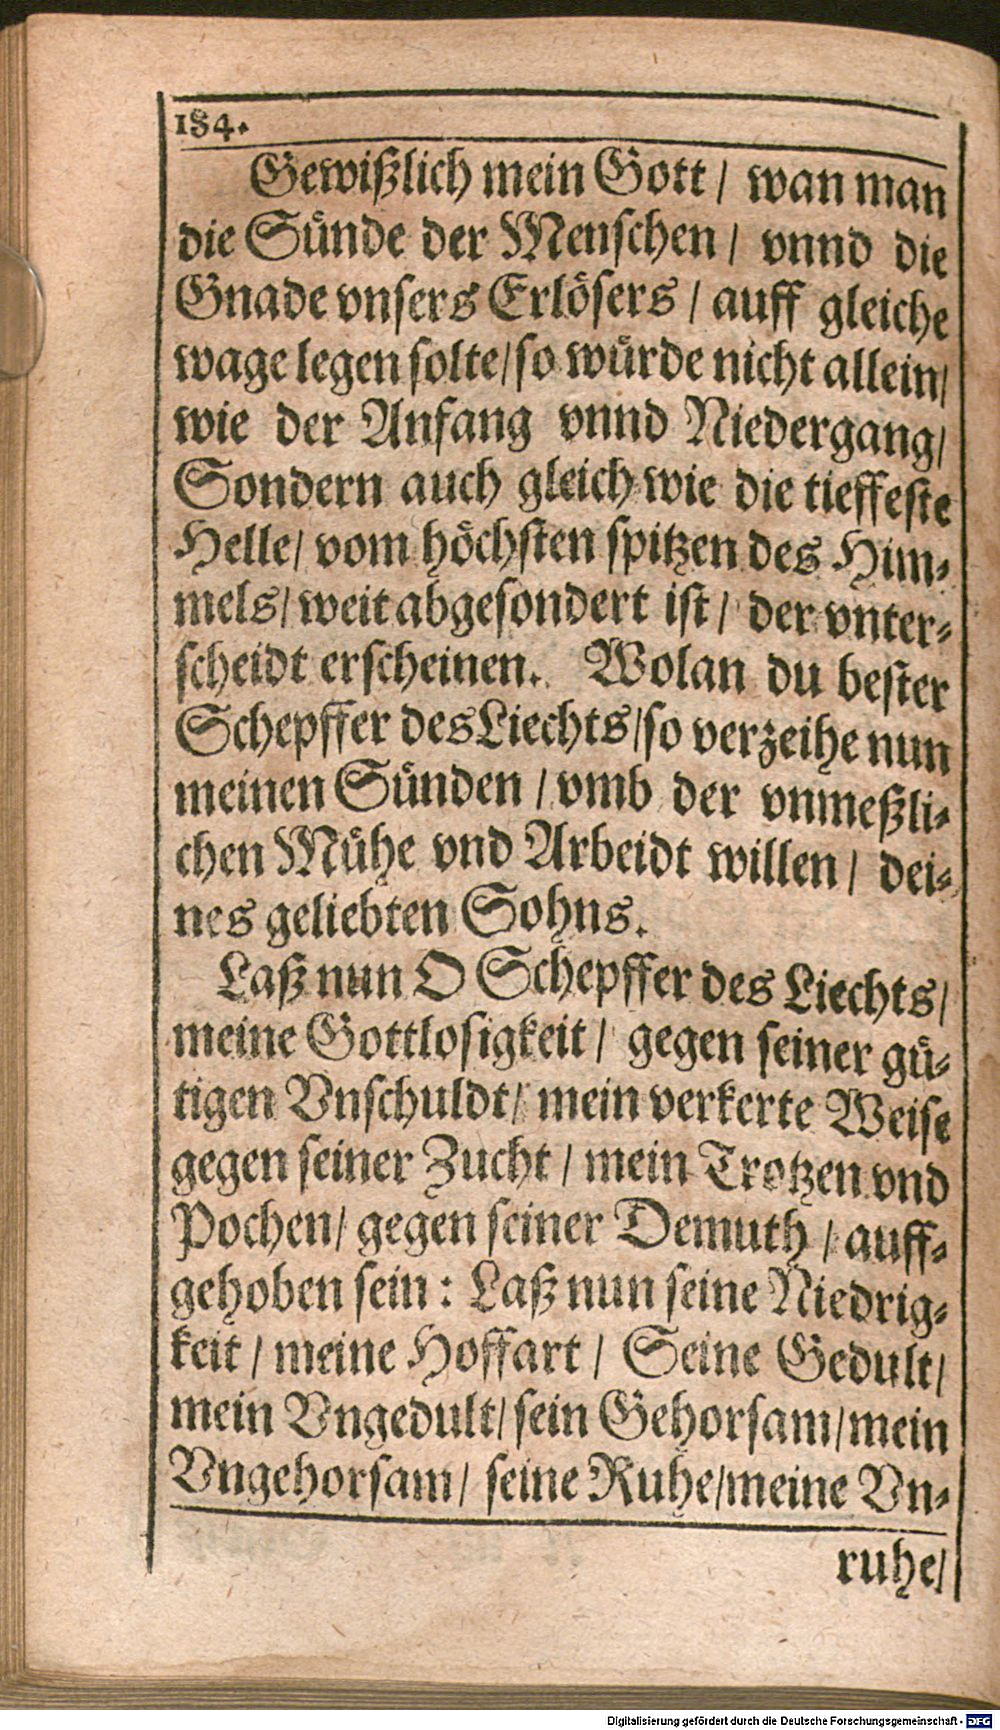 184.
Gewißlich mein Gott / wan man
die Sünde der Menschen / vnnd die
Gnade vnsers Erlösers / auff gleiche
wage legen solte/so würde nicht allein/
wie der Anfang vnnd Niedergang/
Sondern auch gleich wie die tieffeste
Helle/ vom höchsten spitzen des Him-
mels/ weit abgesondert ist/ der vnter-
scheidt erscheinen. Wolan du bester
Schepffer des Liechts/so verzeihe nun
meinen Sünden / vmb der vnmeßli-
chen Mühe vnd Arbeidt willen / dei-
nes geliebten Sohns.
Laß nun O Schepffer des Liechts/
meine Gottlosigkeit/ gegen seiner gü-
tigen Vnschuldt/ mein verkerte Weise
gegen seiner Zucht / mein Trotzen vnd
Pochen/ gegen seiner Demuth / auff-
gehoben sein: Laß nun seine Niedrig-
keit / meine Hoffart / Seine Gedult/
mein Vngedult/ sein Gehorsam/mein
Vngehorsam/ seine Ruhe/meine Vn-
ruhe/
Digitalisierung gefördert durch die Deutsche Forschungsgemeinschaft - DFG